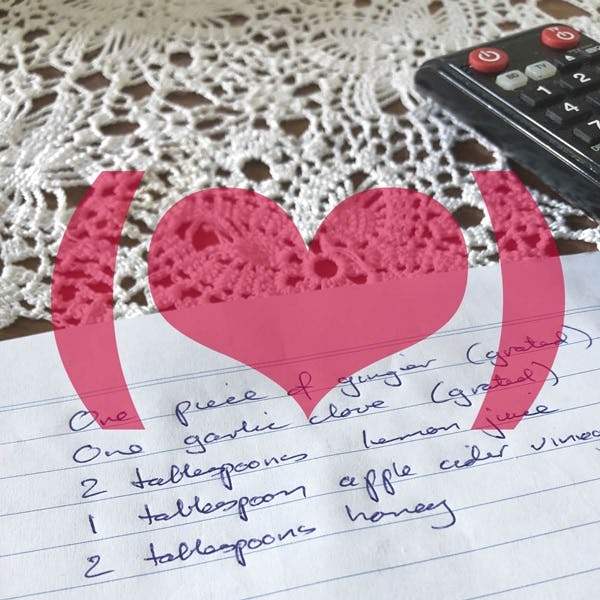 BD TV
1 2
4
7
One piece of gingier (grated)
One garlic clove (grated)
2 tablespoons lemon juice
1 tablespoon apple cider vineg
2 tablespoons honey